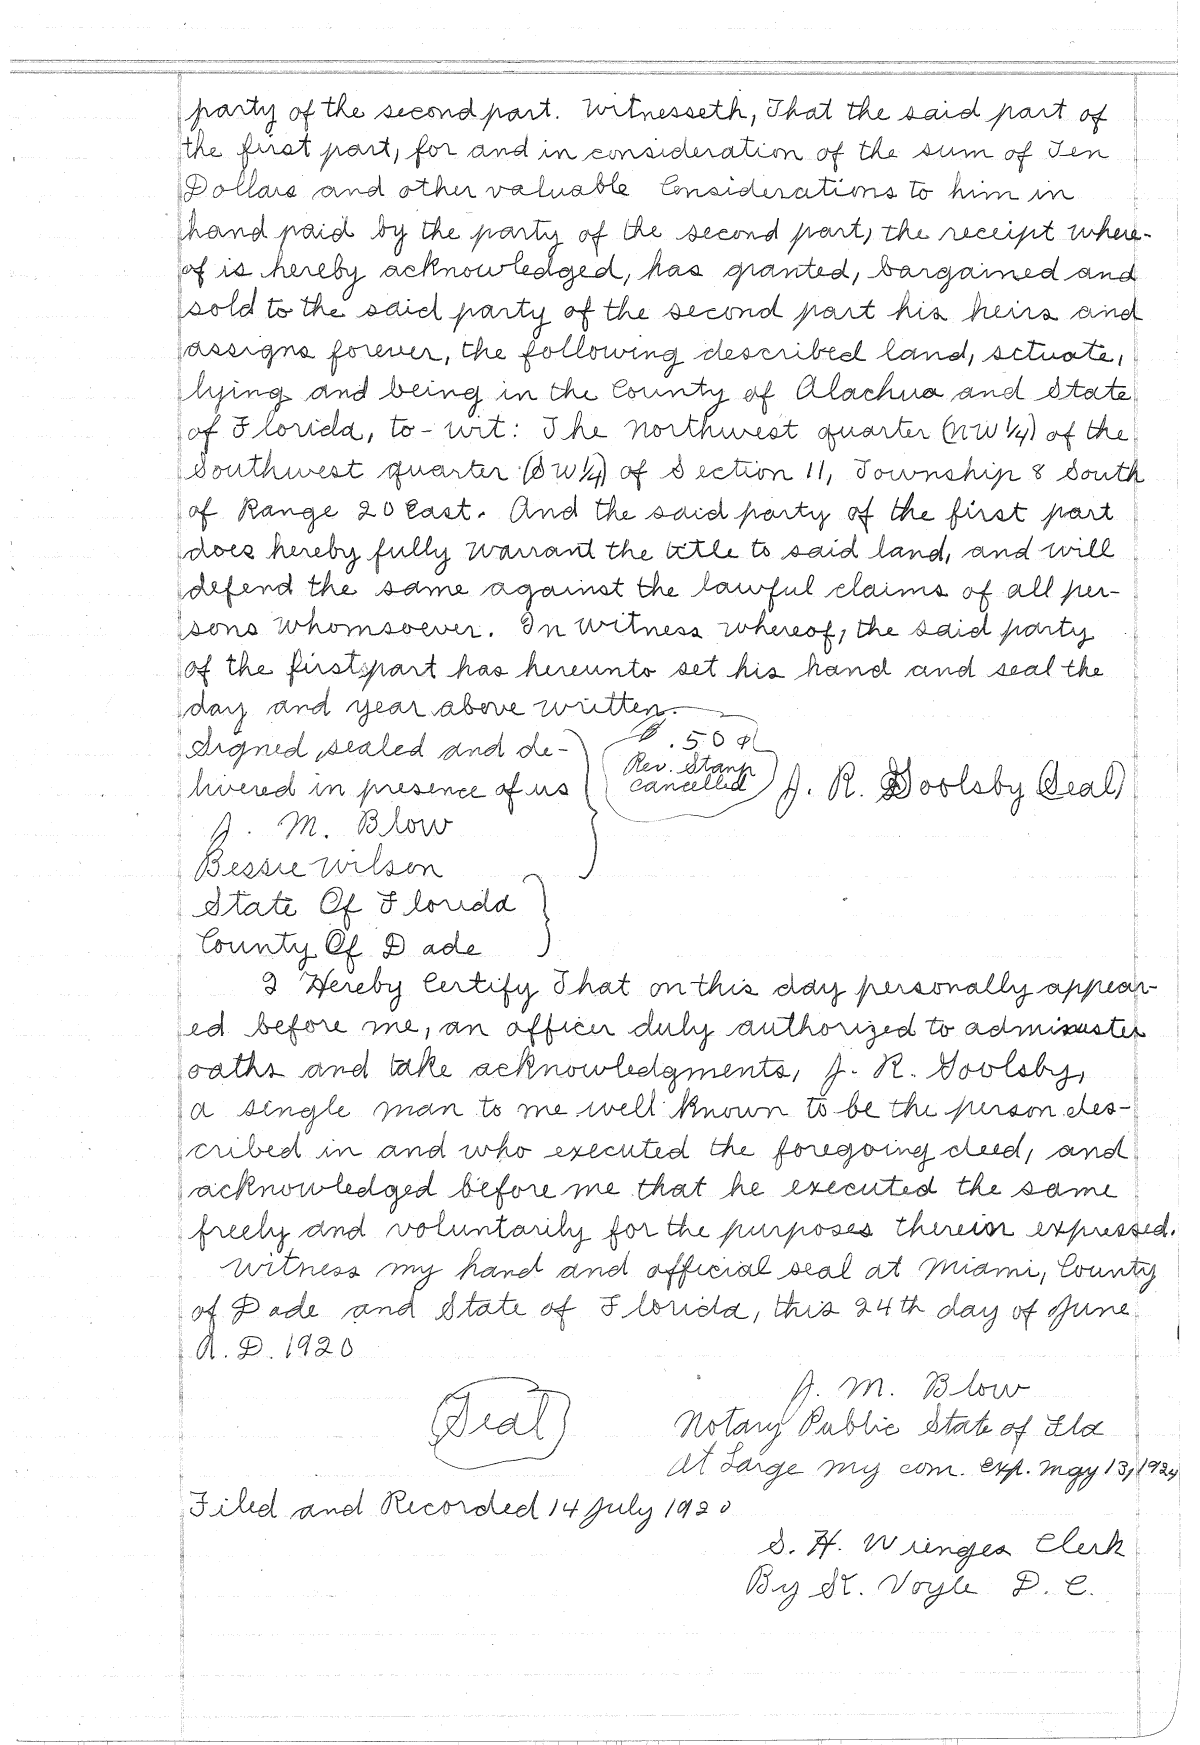 party of the second part. Witnesseth, That the said part of
the first part, for and in consideration of the sum of Ten
Dollars and other valuable Considerations to him in
hand paid by the party of the second part, the receipt where-
of is hereby acknowledged, has granted, bargained and
sold to the said party of the second part his heirs and
assigns forever, the following described land, sctuate,
lying and being in the County of Alachua and State
of Florida, to-wit: The Northwest quarter (NW 1/4) of the
Southwest quarter (SW 1/4) of Section 11, Township 8 South
of Range 20 East. And the said party of the first part
does hereby fully warrant the title to said land, and will
defend the same against the lawful claims of all per-
sons whomsoever. In Witness whereof, the said party
of the first part has hereunto set his hand and seal the
day and year above written.
Signed, sealed and de-
livered in presence of us
.50¢
Rev. Stamp
cancelled
J. R. Goolsby (Seal)
J. M. Blow
Bessie Wilson
State Of Florida
County Of Dade
I Hereby Certify That on this day personally appear-
ed before me, an officer duly authorized to administer
oaths and take acknowledgments, J. R. Goolsby,
a single man to me well known to be the person des-
cribed in and who executed the foregoing deed, and
acknowledged before me that he executed the same
freely and voluntarily for the purposes therein expressed.
Witness my hand and official seal at Miami, County
of Dade and State of Florida, this 24th day of June
A. D. 1920
J. M. Blow
(Seal)
Notary Public State of Fla
at Large my com. exp. May 13, 1924
Filed and Recorded 14 July 1920
S. H. Wienges Clerk
By St. Voyle D. C.